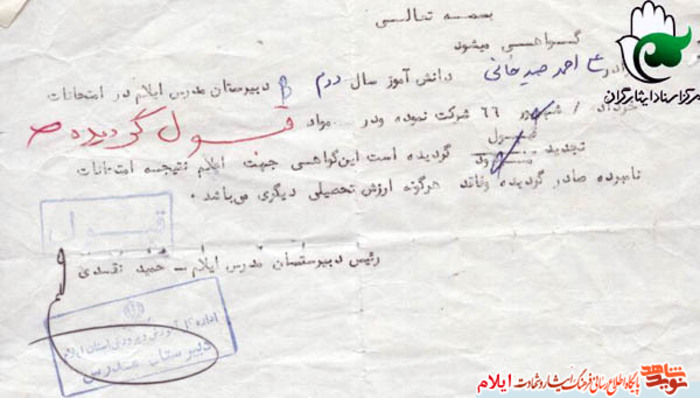 بسمه تعالی
گواهی میشود
برادر احمد صیدخانی دانش آموز سال دوم B دبیرستان مدرس ایلام در امتحانات
خرداد / شهریور ۶۶ شرکت نموده ودر مواد قبول گردیده
قبول
تجدید گردیده است این گواهی جهت اعلام نتیجه امتحانات
مردود
نامبرده صادر گردیده وفاقد هرگونه ارزش تحصیلی دیگری می‌باشد .
قبول
رئیس دبیرستان مدرس ایلام – حمید نقدی
اداره کل آموزش و پرورش استان ایلام
دبیرستان مدرس
مرکز اسناد ایثارگران
نوید شاهد
پایگاه اطلاع رسانی فرهنگ ایثار و شهادت ایلام